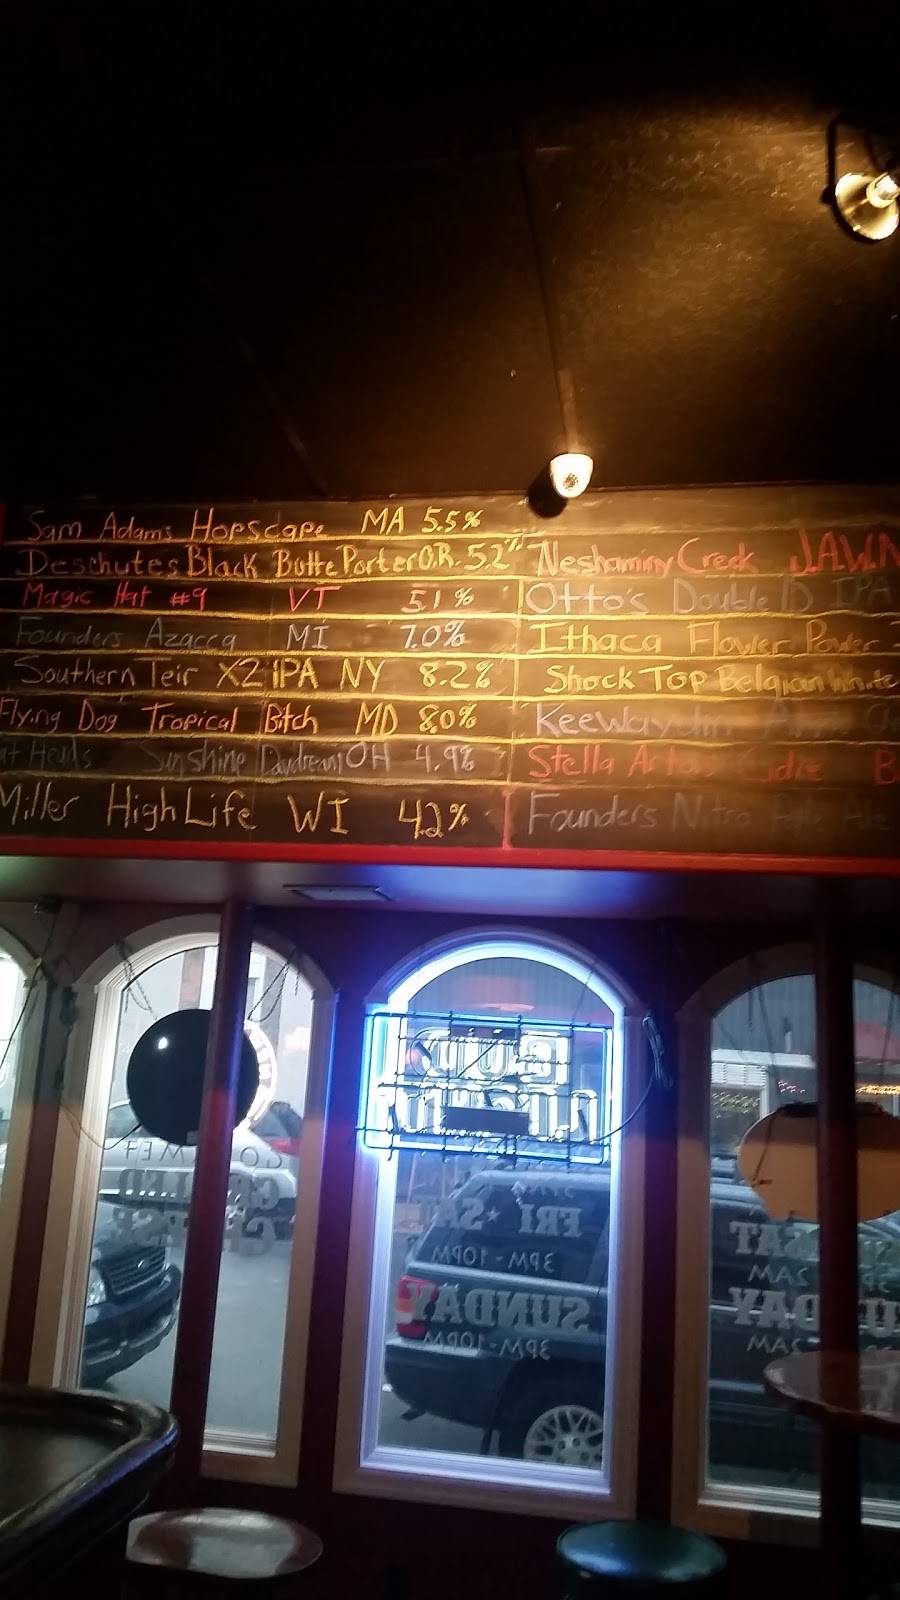 Sam Adams Hopscape MA 5.5%
Deschutes Black Butte Porter OR. 5.2%
Magic Hat #9 VT 5.1%
Founders Azacca MI 7.0%
Southern Teir X2 IPA NY 8.2%
Flying Dog Tropical Bitch MD 8.0%
at Heads Sunshine Daydream OH 4.9%
Miller High Life WI 4.2%
Neshaminy Creek JAWN
Otto's Double D IPA
Ithaca Flower Power
Shock Top Belgian White
Keewaydin
Stella Artois Cidre B
Founders Nitro Pale Ale
BUD
LIGHT
GRILLED
CHEESE
FRI * SA
3PM - 10PM
SUNDAY
3PM - 10PM
SAT
2AM
DAY
2AM